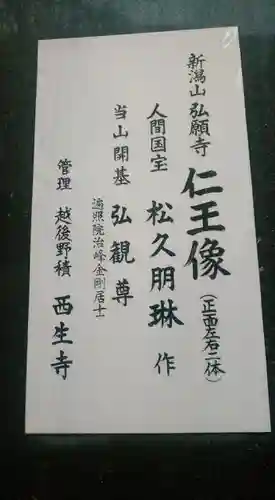 新潟山 弘願寺
仁王像 (正面左右二体)
人間国宝 松久朋琳 作
当山開基 弘観尊
遍照院治峰金剛居士
管理 越後野積 西生寺